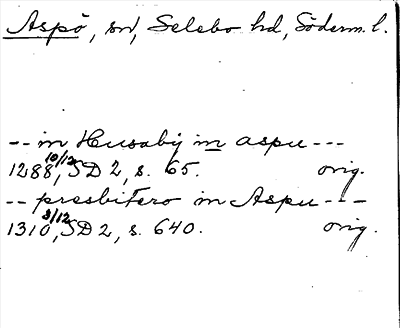 Aspö, sn, Selebo hd, Söderm. l.
-- in Husaby in aspu ---
1288 10/12, SD 2, s. 65. orig.
-- presbitero in Aspu ---
1310 3/12, SD 2, s. 640. orig.